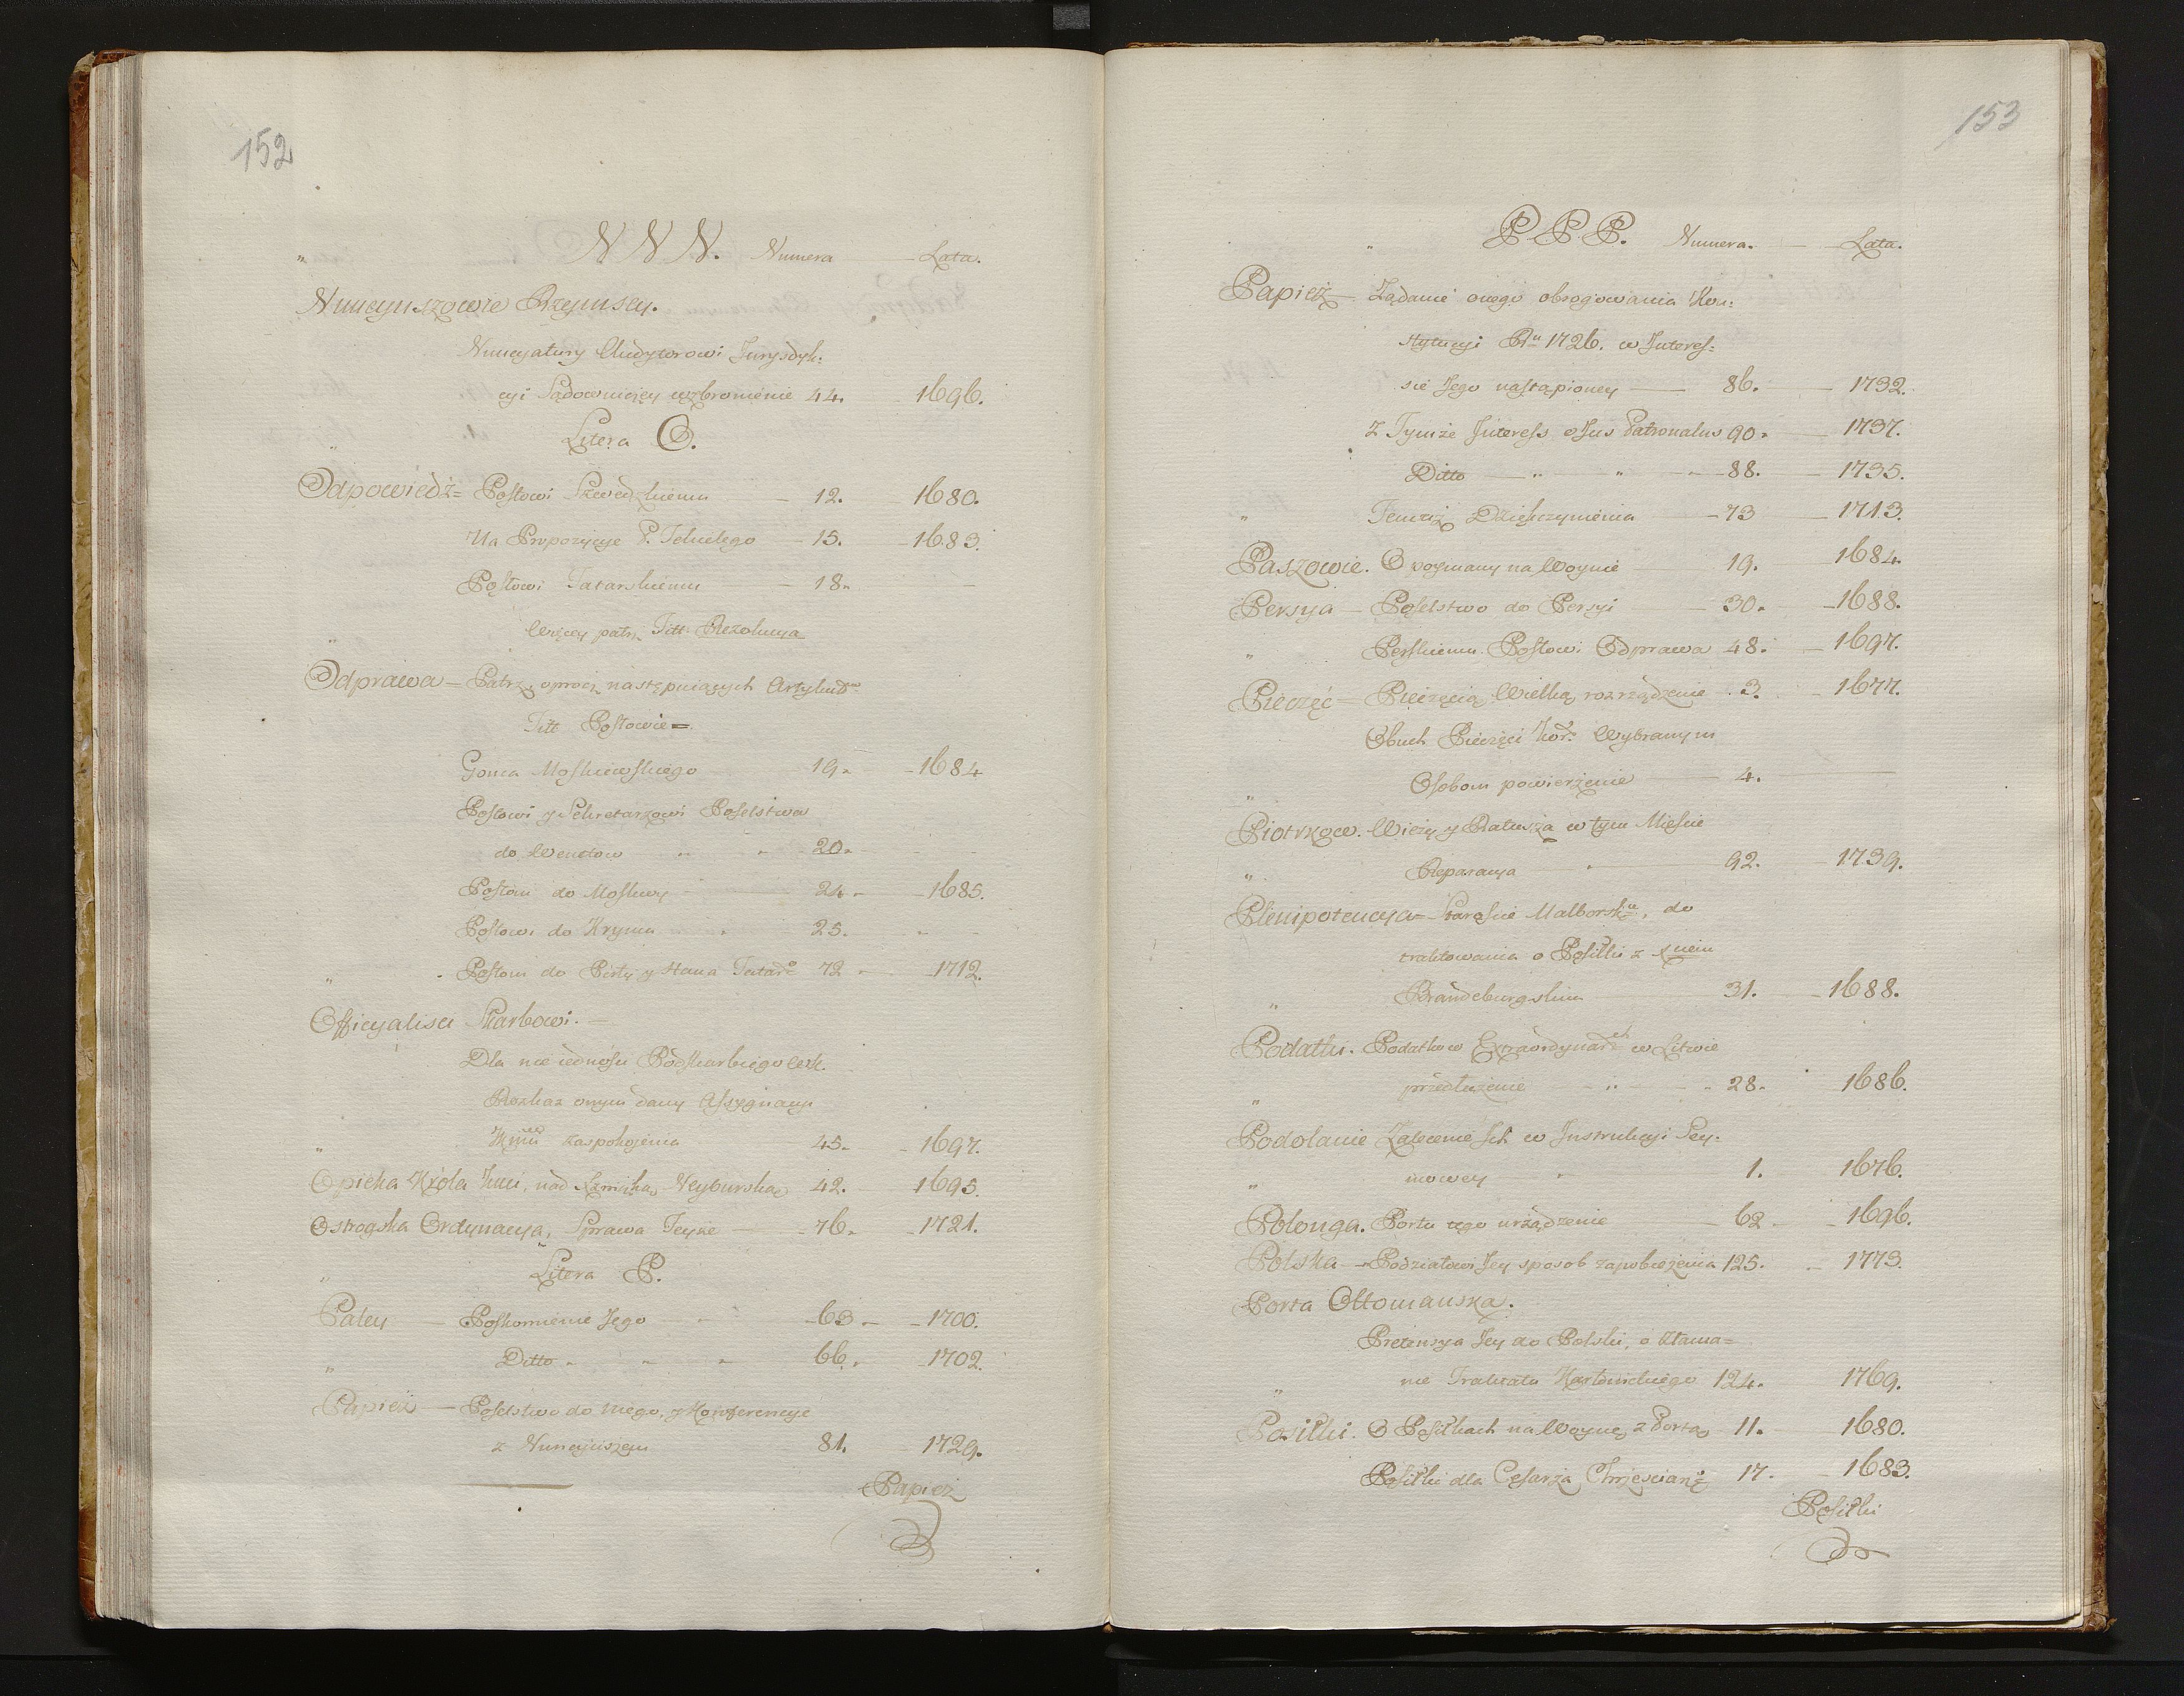 152
N N N. Numera Lata.
Nuncyuszowie Rzymscy.
Nuncyatury Audytorowi Jurysdyk:
cyi Sądowniczey wzbronienie 44. 1696.
Litera O.
Odpowiedź = Posłowi Szwedzkiemu 12. 1680.
Na Propozycye P. Tekielego 15. 1683.
Posłowi Tatarskiemu 18. —
Więcey patrz Titt. Rezolucya
Odprawa = Patrz oprocz następuiących Artykułow
Titt Posłowie =
Gonca Moskiewskiego 19. 1684
Posłowi y Sekretarzowi Poselstwa
do Wenetow 20. —
Posłom do Moskwy 24. 1685.
Posłowi do Krymu 25. —
Posłom do Porty y Hana Tatar: 72 1712.
Officyalisci Skarbowi. —
Dla nieiednosci Podskarbiego
Rozkaz onym dany Assygnacyi
zaspokojenia 45. 1697.
Opieka Króla Jmci, nad Neyburską 42. 1695.
Ostrogska Ordynacya, Sprawa Teyże 76. 1721.
Litera P.
Paley — Poskromienie Jego 63 — 1700.
Ditto 66. 1702.
Papież — Poselstwo do niego, y Konferencye
z Nuncyuszem 81. 1729.
Papież
153
P. P. P. Numera. Lata.
Papież — Żądanie onego abrogowania Kon:
stytucyi Ru 1726. w Interes:
sie Jego nastąpioney 86. 1732.
Z Tymże Interess o Jus Patronatus 90. 1737.
Ditto 88. 1735.
Temuż Dziękczynienia 73 1713.
Paszowie. O poymany na Woynie 19. 1684.
Persya — Poselstwo do Persyi 30. 1688.
Perskiemu Posłowi Odprawa 48. 1697.
Pieczęć = Pieczęcią Wielką rozrządzenie 3. 1677.
Obuch Pieczęci Kor: Wybranym
Osobom powierzenie 4. —
Piotrkow. Wieży y Ratusza w tym Mieście
Reparacya 92. 1739.
Plenipotencya = Staroście Malborsku, do
traktowania o Posiłki z
Brandeburgskim 31. 1688.
Podatki. Podatkow Extraordynar: w Litwie
przedłużenie 28. 1686.
Podolanie Zalecenie Ich w Instrukcyi Sey:
mowey 1. 1676.
Polonga. Portu tego urządzenie 62 1696.
Polska — Podziałowi Jey sposob zapobieżenia 125. 1773.
Porta Ottomanska.
Pretensya Jey do Polski, o złama=
nie Traktatu Karłowickiego 124. 1769.
Posiłki. O Posiłkach na Woynę z Portą 11. 1680.
Posiłki dla Cesarza Chrześcian: 17. 1683.
Posiłki